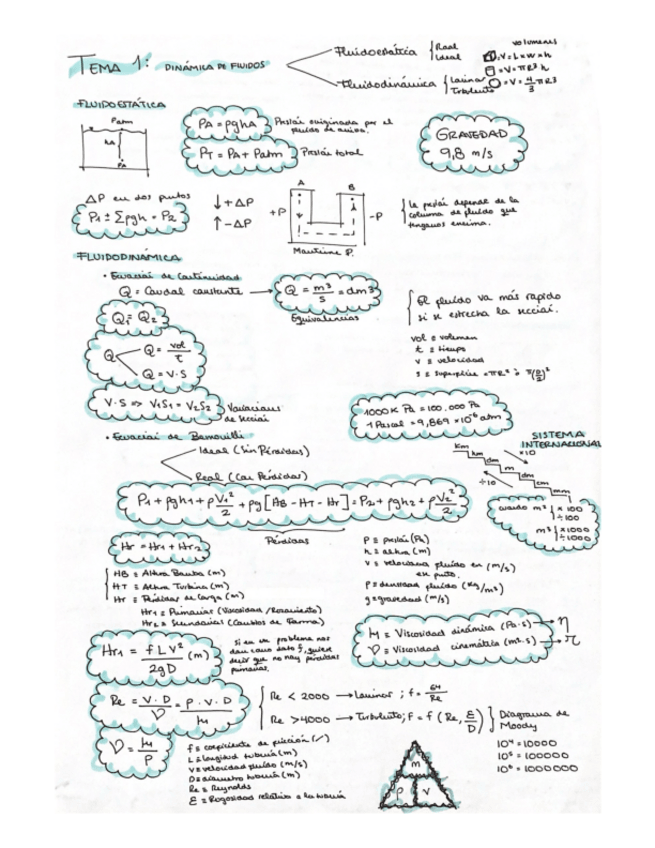 TEMA 1: DINÁMICA DE FLUIDOS
Fluidoestática { Real
Ideal
Fluidodinámica { Laminar
Turbulento
volumenes
V = L x W x h
= V = πR² h
= V = 4/3 πR3
FLUIDOESTÁTICA
Patm
hA
PA
PA = ρghA } Presión originada por el
fluido de arriba.
PT = PA + Patm } Presión total
GRAVEDAD
9,8 m/s
ΔP en dos puntos
P1 ± Σρgh = P2
↓ + ΔP
↑ - ΔP
A B
+P -P
Mantiene P.
La presión depende de la
columna de fluido que
tengamos encima.
FLUIDODINÁMICA
• Ecuación de Continuidad
Q = Caudal constante → Q = m³/s = dm³
Equivalencias
Q1 = Q2
Q
Q = vol/t
Q = V·S
El fluido va más rapido
si se estrecha la sección.
vol = volumen
t = tiempo
v = velocidad
s = superficie = πR² ò π(D/2)²
V·S => V1S1 = V2S2 } Variaciones
de sección
1000K Pa = 100.000 Pa
1 Pascal = 9,869 × 10⁻⁶ atm
• Ecuación de Bernouilli
Ideal (Sin Pérdidas)
Real (Con Pérdidas)
SISTEMA
INTERNACIONAL
km
hm
dm
m
dm
cm
mm
×10
÷10
P1 + ρgh1 + ρV1²/2 + ρg[HB - HT - Hr] = P2 + ρgh2 + ρV2²/2
Pérdidas
cuando m² } × 100
÷ 100
m³ } × 1000
÷ 1000
Hr = Hr1 + Hr2
HB = Altura Bomba (m)
HT = Altura Turbina (m)
Hr = Pérdidas de Carga (m)
Hr1 = Primarias (Viscosidad / Rozamiento)
Hr2 = Secundarias (Cambios de Forma)
P = presión (Pa)
h = altura (m)
v = velocidad fluido en (m/s)
en punto.
ρ = densidad fluido (Kg/m³)
g = gravedad (m/s)
Hr1 = f L V²/2gD (m)
Si en un problema nos
dan como dato ξ, quiere
decir que no hay pérdidas
primarias.
μ = Viscosidad dinámica (Pa·s) → η
ν = Viscosidad cinemática (m²·s) →
Re = V·D/ν = ρ·V·D/μ
Re < 2000 → Laminar ; f = 64/Re
Re > 4000 → Turbulento; F = f (Re, E/D) } Diagrama de
Moody
ν = μ/ρ
f = coeficiente de fricción (/)
L = longitud tubería (m)
V = velocidad fluido (m/s)
D = diámetro tubería (m)
Re = Reynolds
E = Rogosidad relativa a la tubería
m
ρ V
10⁴ = 10000
10⁵ = 100000
10⁶ = 1000000